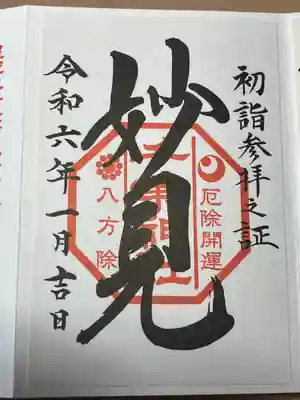 初詣参拝之証
妙見
厄除開運
八方除
令和六年一月吉日